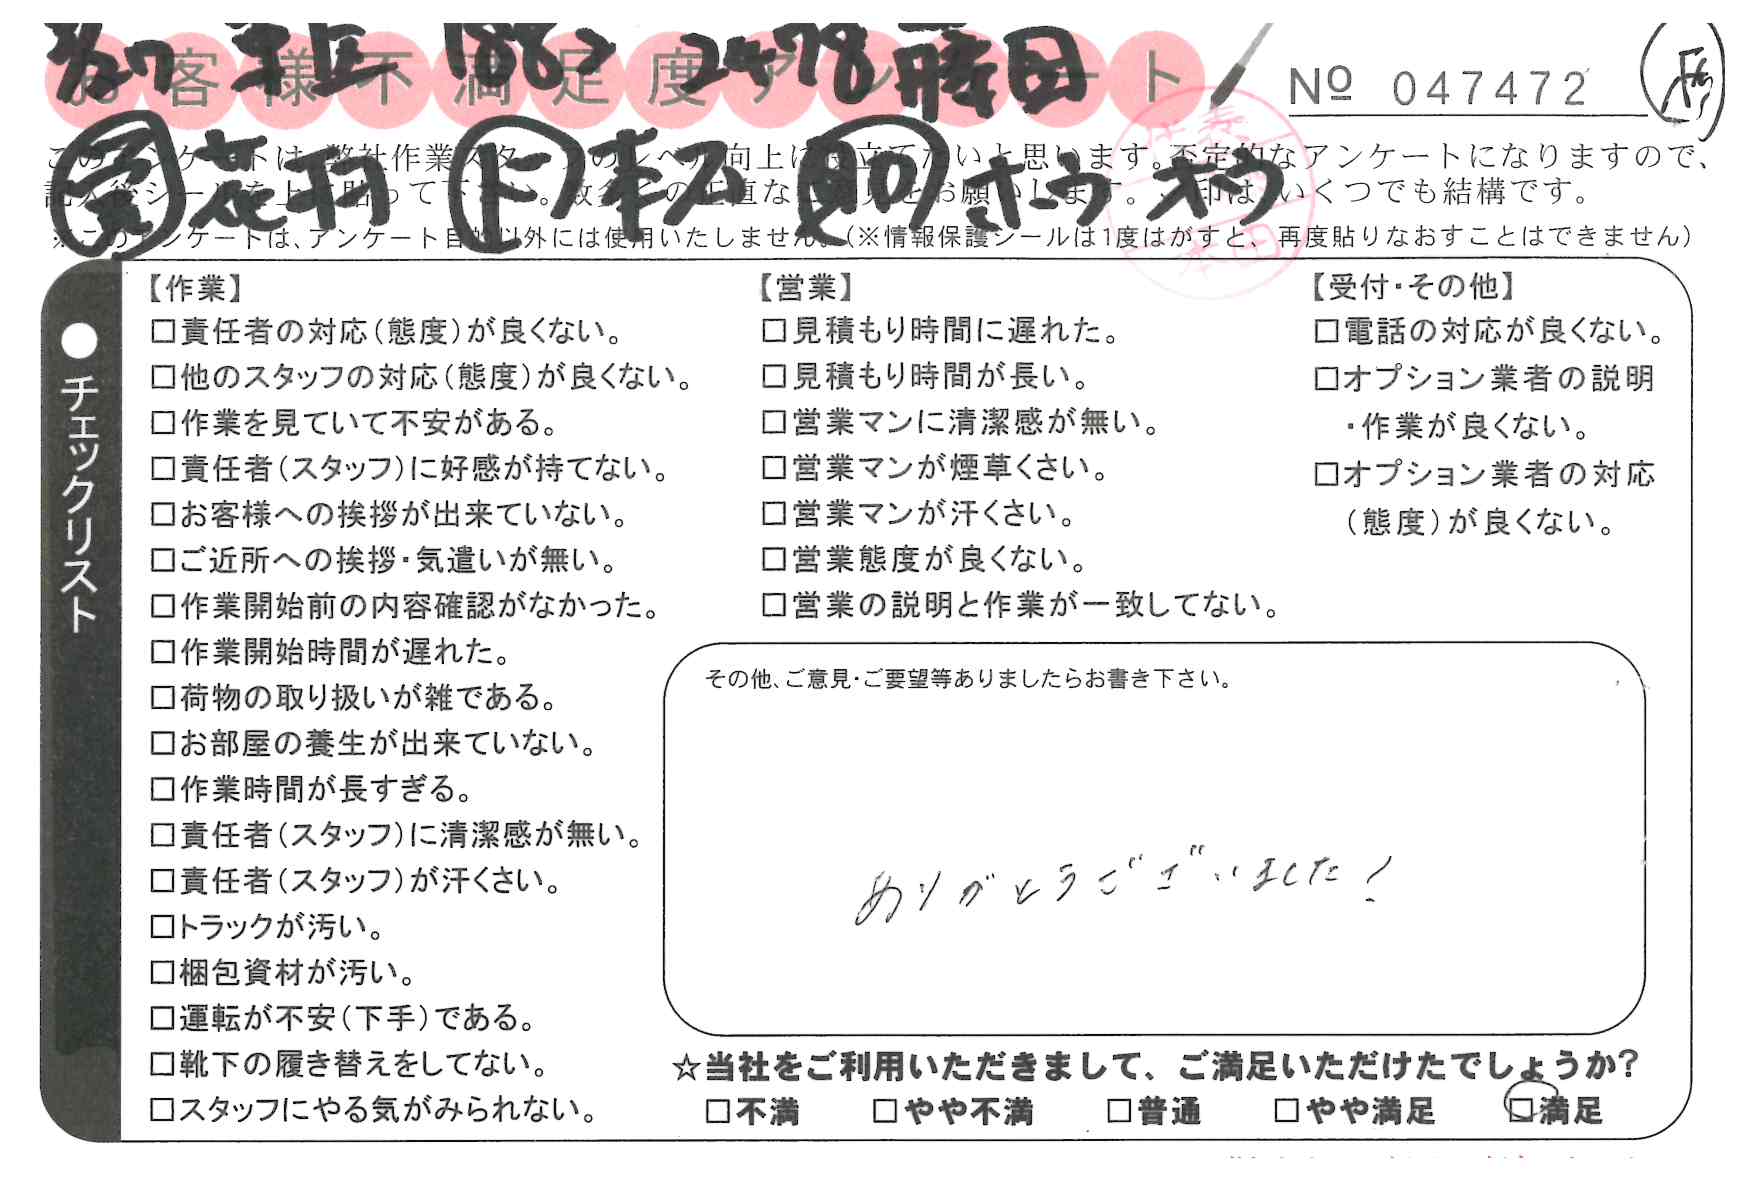 お客様不満足度アンケート
№ 047472
3/27 1882 2478 勝田
このアンケートは、弊社作業スタッフのレベル向上に役立てたいと思います。否定的なアンケートになりますので、
記入後シールを上に貼って下さい。数多くの正直なご意見をお願いします。 印は、いくつでも結構です。
※このアンケートは、アンケート目的以外には使用いたしません。(※情報保護シールは1度はがすと、再度貼りなおすことはできません)
●チェックリスト
【作業】
□責任者の対応(態度)が良くない。
□他のスタッフの対応(態度)が良くない。
□作業を見ていて不安がある。
□責任者(スタッフ)に好感が持てない。
□お客様への挨拶が出来ていない。
□ご近所への挨拶・気遣いが無い。
□作業開始前の内容確認がなかった。
□作業開始時間が遅れた。
□荷物の取り扱いが雑である。
□お部屋の養生が出来ていない。
□作業時間が長すぎる。
□責任者(スタッフ)に清潔感が無い。
□責任者(スタッフ)が汗くさい。
□トラックが汚い。
□梱包資材が汚い。
□運転が不安(下手)である。
□靴下の履き替えをしてない。
□スタッフにやる気がみられない。
【営業】
□見積もり時間に遅れた。
□見積もり時間が長い。
□営業マンに清潔感が無い。
□営業マンが煙草くさい。
□営業マンが汗くさい。
□営業態度が良くない。
□営業の説明と作業が一致してない。
【受付・その他】
□電話の対応が良くない。
□オプション業者の説明
・作業が良くない。
□オプション業者の対応
(態度)が良くない。
その他、ご意見・ご要望等ありましたらお書き下さい。
ありがとうございました!
☆当社をご利用いただきまして、ご満足いただけたでしょうか?
□不満 □やや不満 □普通 □やや満足 □満足